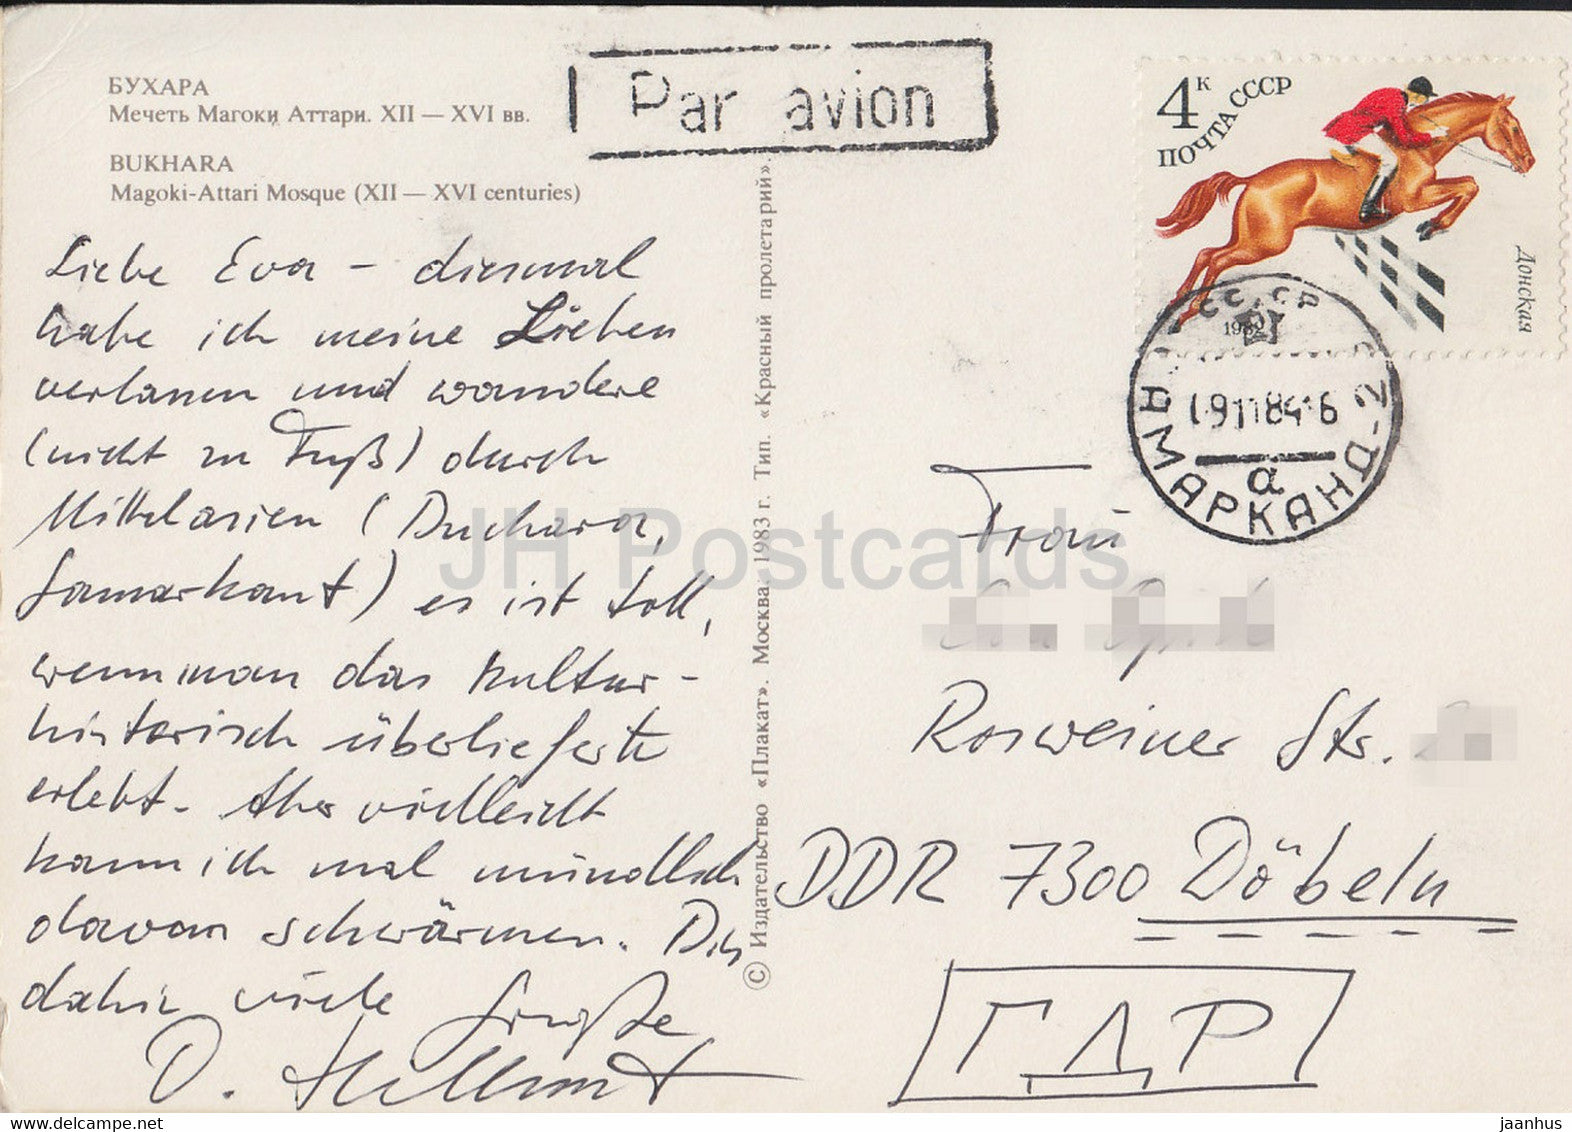 БУХАРА
Мечеть Магоки Аттари. XII — XVI вв.
BUKHARA
Magoki-Attari Mosque (XII — XVI centuries)
Par avion
4 к
ПОЧТА СССР
Донская
1982
СССР
САМАРКАНД-2
191184-16
а
Liebe Eva – diesmal
habe ich meine Lieben
verlassen und wandere
(nicht zu Fuß) durch
Mittelasien (Buchara,
Samarkant) es ist toll,
wenn man das Kultur-
historisch überlieferte
erlebt. Aber vielleicht
kann ich mal mündlich
davon schwärmen. Bis
dahin viele Grüße
D. Hellmut
© Издательство «Плакат». Москва. 1983 г. Тип. «Красный пролетарий».
Frau
Rosweiner Str.
DDR 7300 Döbeln
ГДР
JH Postcards
delcampe.net
jaanhus